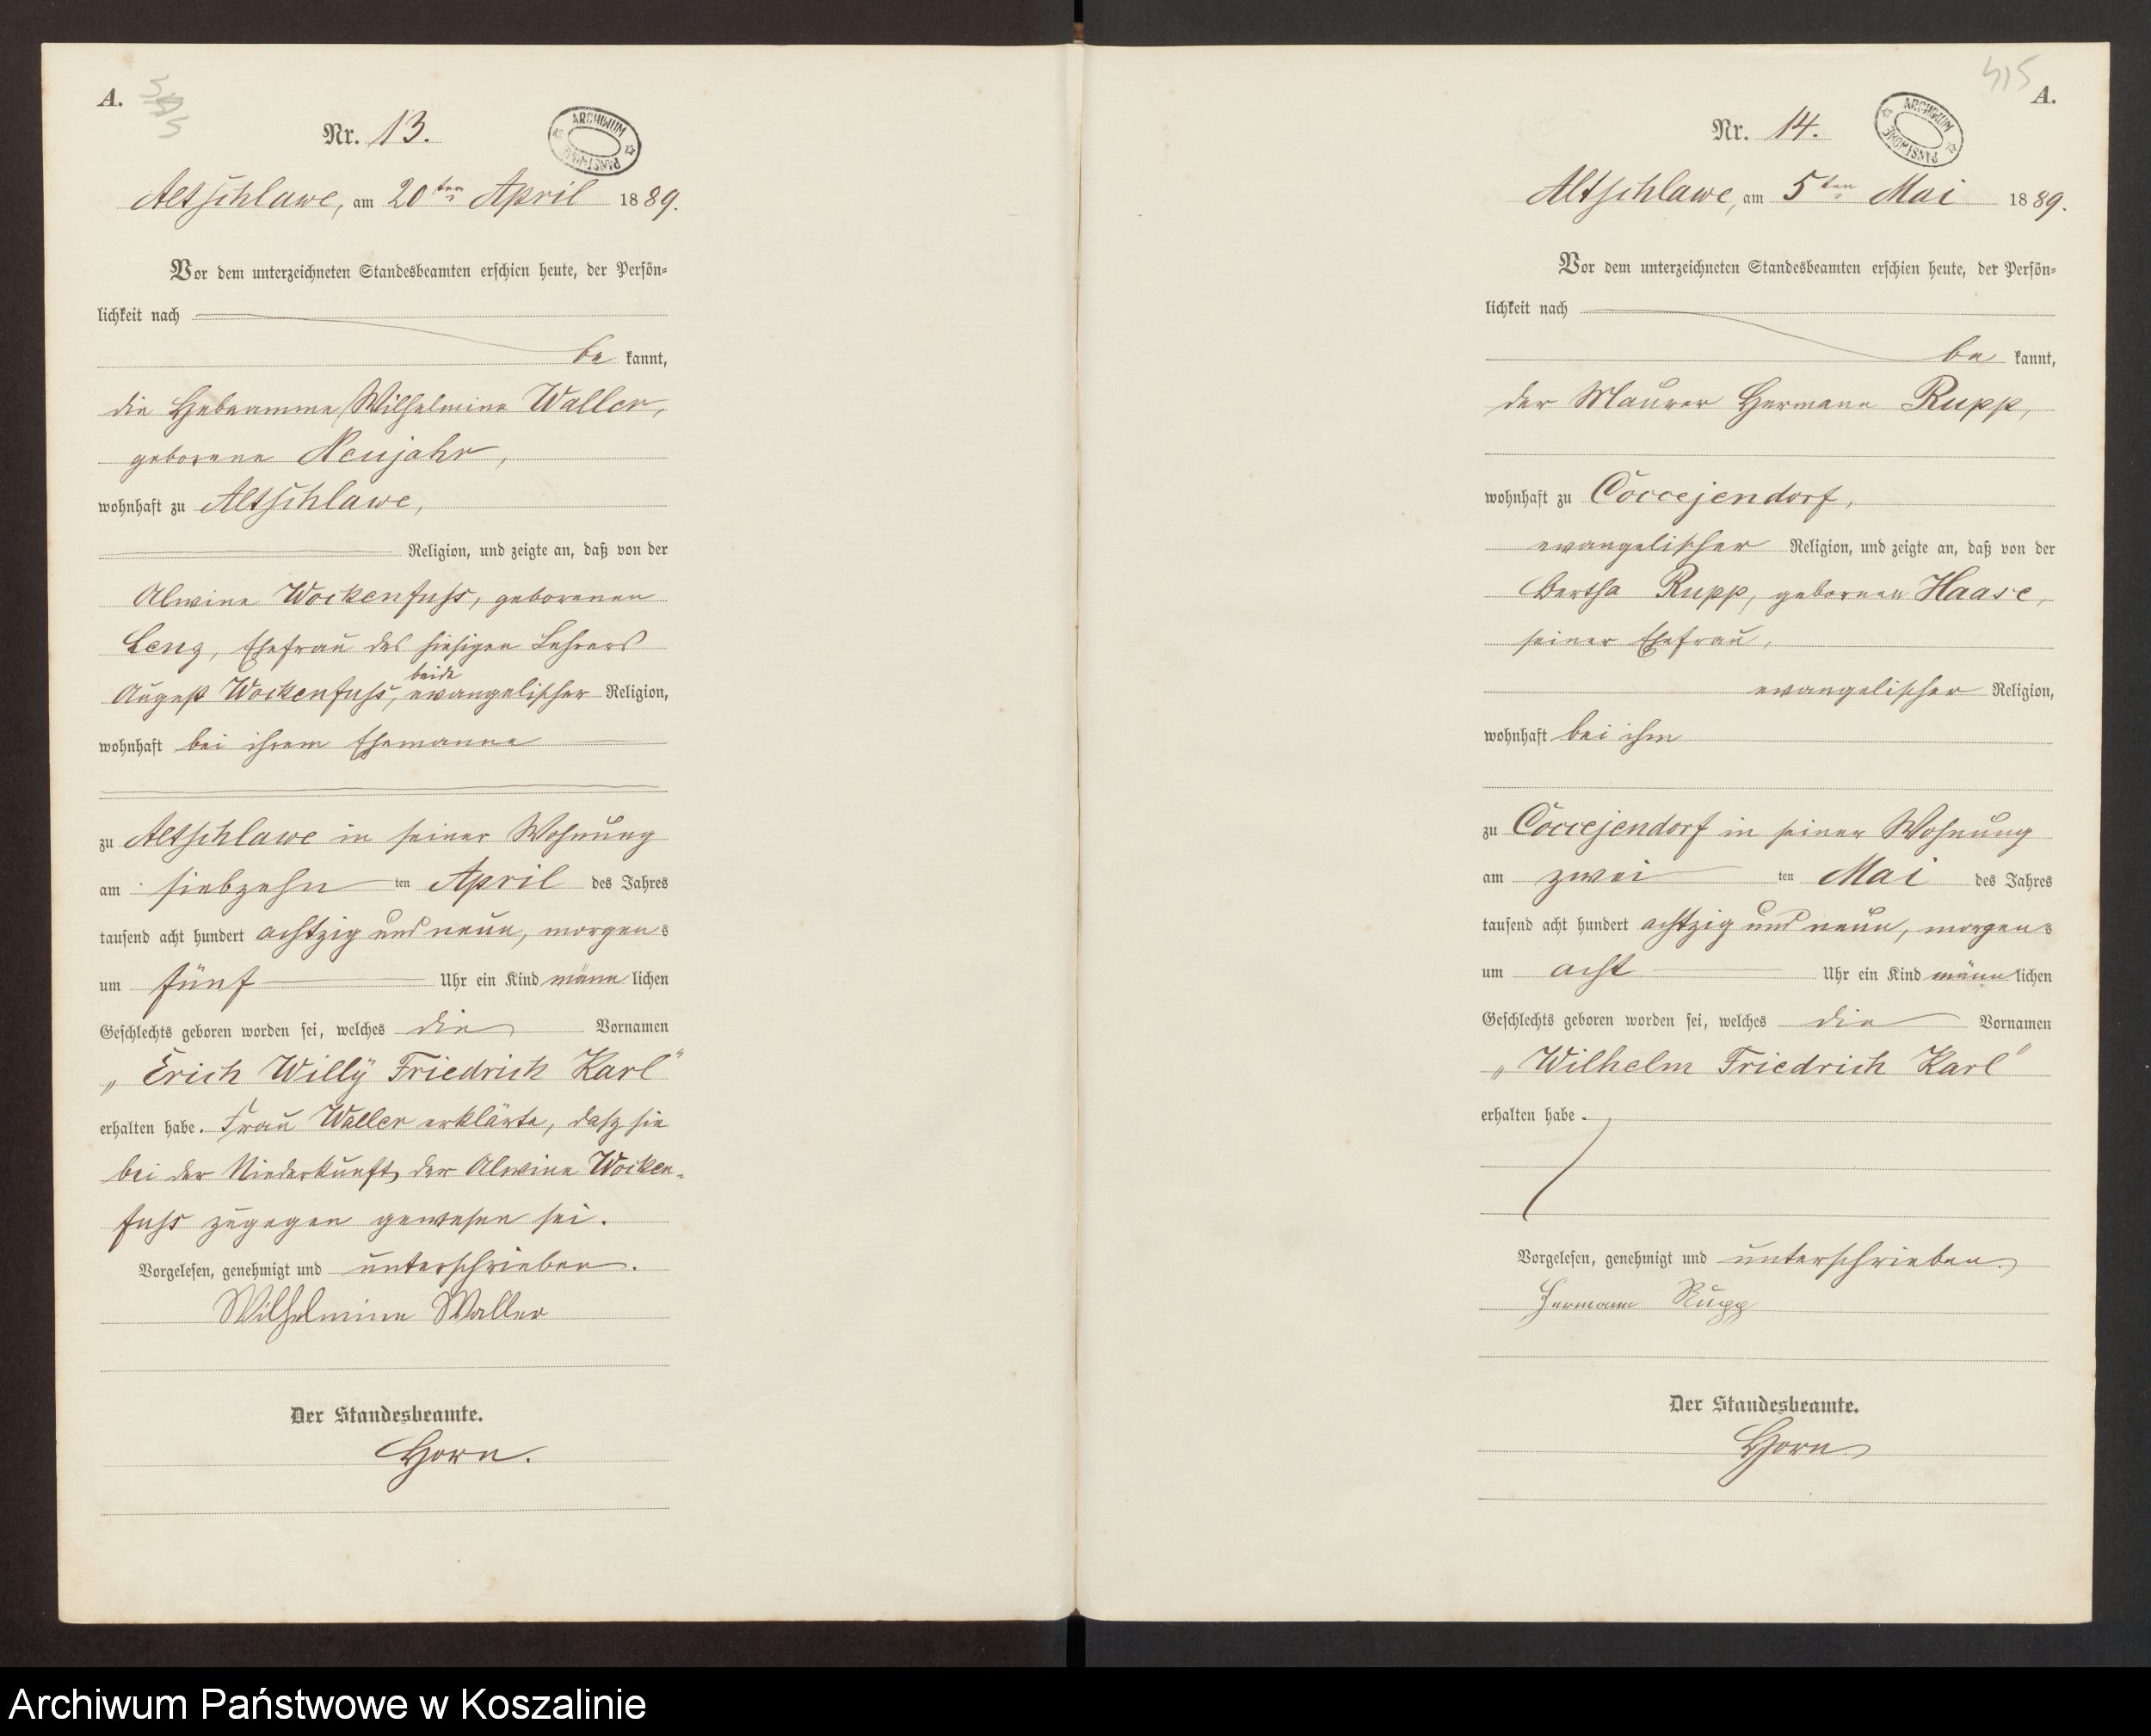 A.
Nr. 13.
ARCHIWUM PAŃSTWOWE
Altschlawe, am 20ten April 1889.
Vor dem unterzeichneten Standesbeamten erschien heute, der Persön-
lichkeit nach
be kannt,
die Hebeamme Wilhelmine Waller,
geborene Neujahr,
wohnhaft zu Altschlawe,
Religion, und zeigte an, daß von der
Alwine Wockenfuss, geborenen
Leng, Ehefrau des hiesigen Lehrers
beide
August Wockenfuss, evangelischer Religion,
wohnhaft bei ihrem Ehemanne
zu Altschlawe in seiner Wohnung
am siebzehn ten April des Jahres
tausend acht hundert achtzig und neun, morgens
um fünf Uhr ein Kind männlichen
Geschlechts geboren worden sei, welches die Vornamen
„Erich Willÿ Friedrich Karl"
erhalten habe. Frau Waller erklärte, daß sie
bei der Niederkunft der Alwine Wocken-
fuss zugegen gewesen sei.
Vorgelesen, genehmigt und unterschrieben.
Wilhelmine Waller
Der Standesbeamte.
Horn.
415
A.
Nr. 14.
ARCHIWUM PAŃSTWOWE
Altschlawe, am 5ten Mai 1889.
Vor dem unterzeichneten Standesbeamten erschien heute, der Persön-
lichkeit nach
be kannt,
der Maurer Hermann Rupp,
wohnhaft zu Coccejendorf,
evangelischer Religion, und zeigte an, daß von der
Bertha Rupp, geborenen Haase,
seiner Ehefrau,
evangelischer Religion,
wohnhaft bei ihm
zu Coccejendorf in seiner Wohnung
am zwei ten Mai des Jahres
tausend acht hundert achtzig und neun, morgens
um acht Uhr ein Kind männlichen
Geschlechts geboren worden sei, welches die Vornamen
„Wilhelm Friedrich Karl"
erhalten habe.
Vorgelesen, genehmigt und unterschrieben.
Hermann Rupp
Der Standesbeamte.
Horn
Archiwum Państwowe w Koszalinie